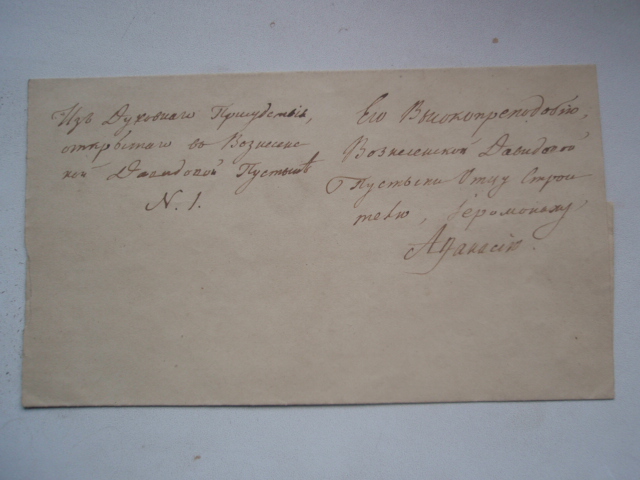 Изъ Духовнаго Присудствія,
открытаго въ Вознесенс
кой Давидовой Пустынѣ
N. 1.
Его Высокопреподобію,
Вознесенской Давидовой
Пустыни Отцу Строи
телю, Іеромонаху
Аѳанасію.